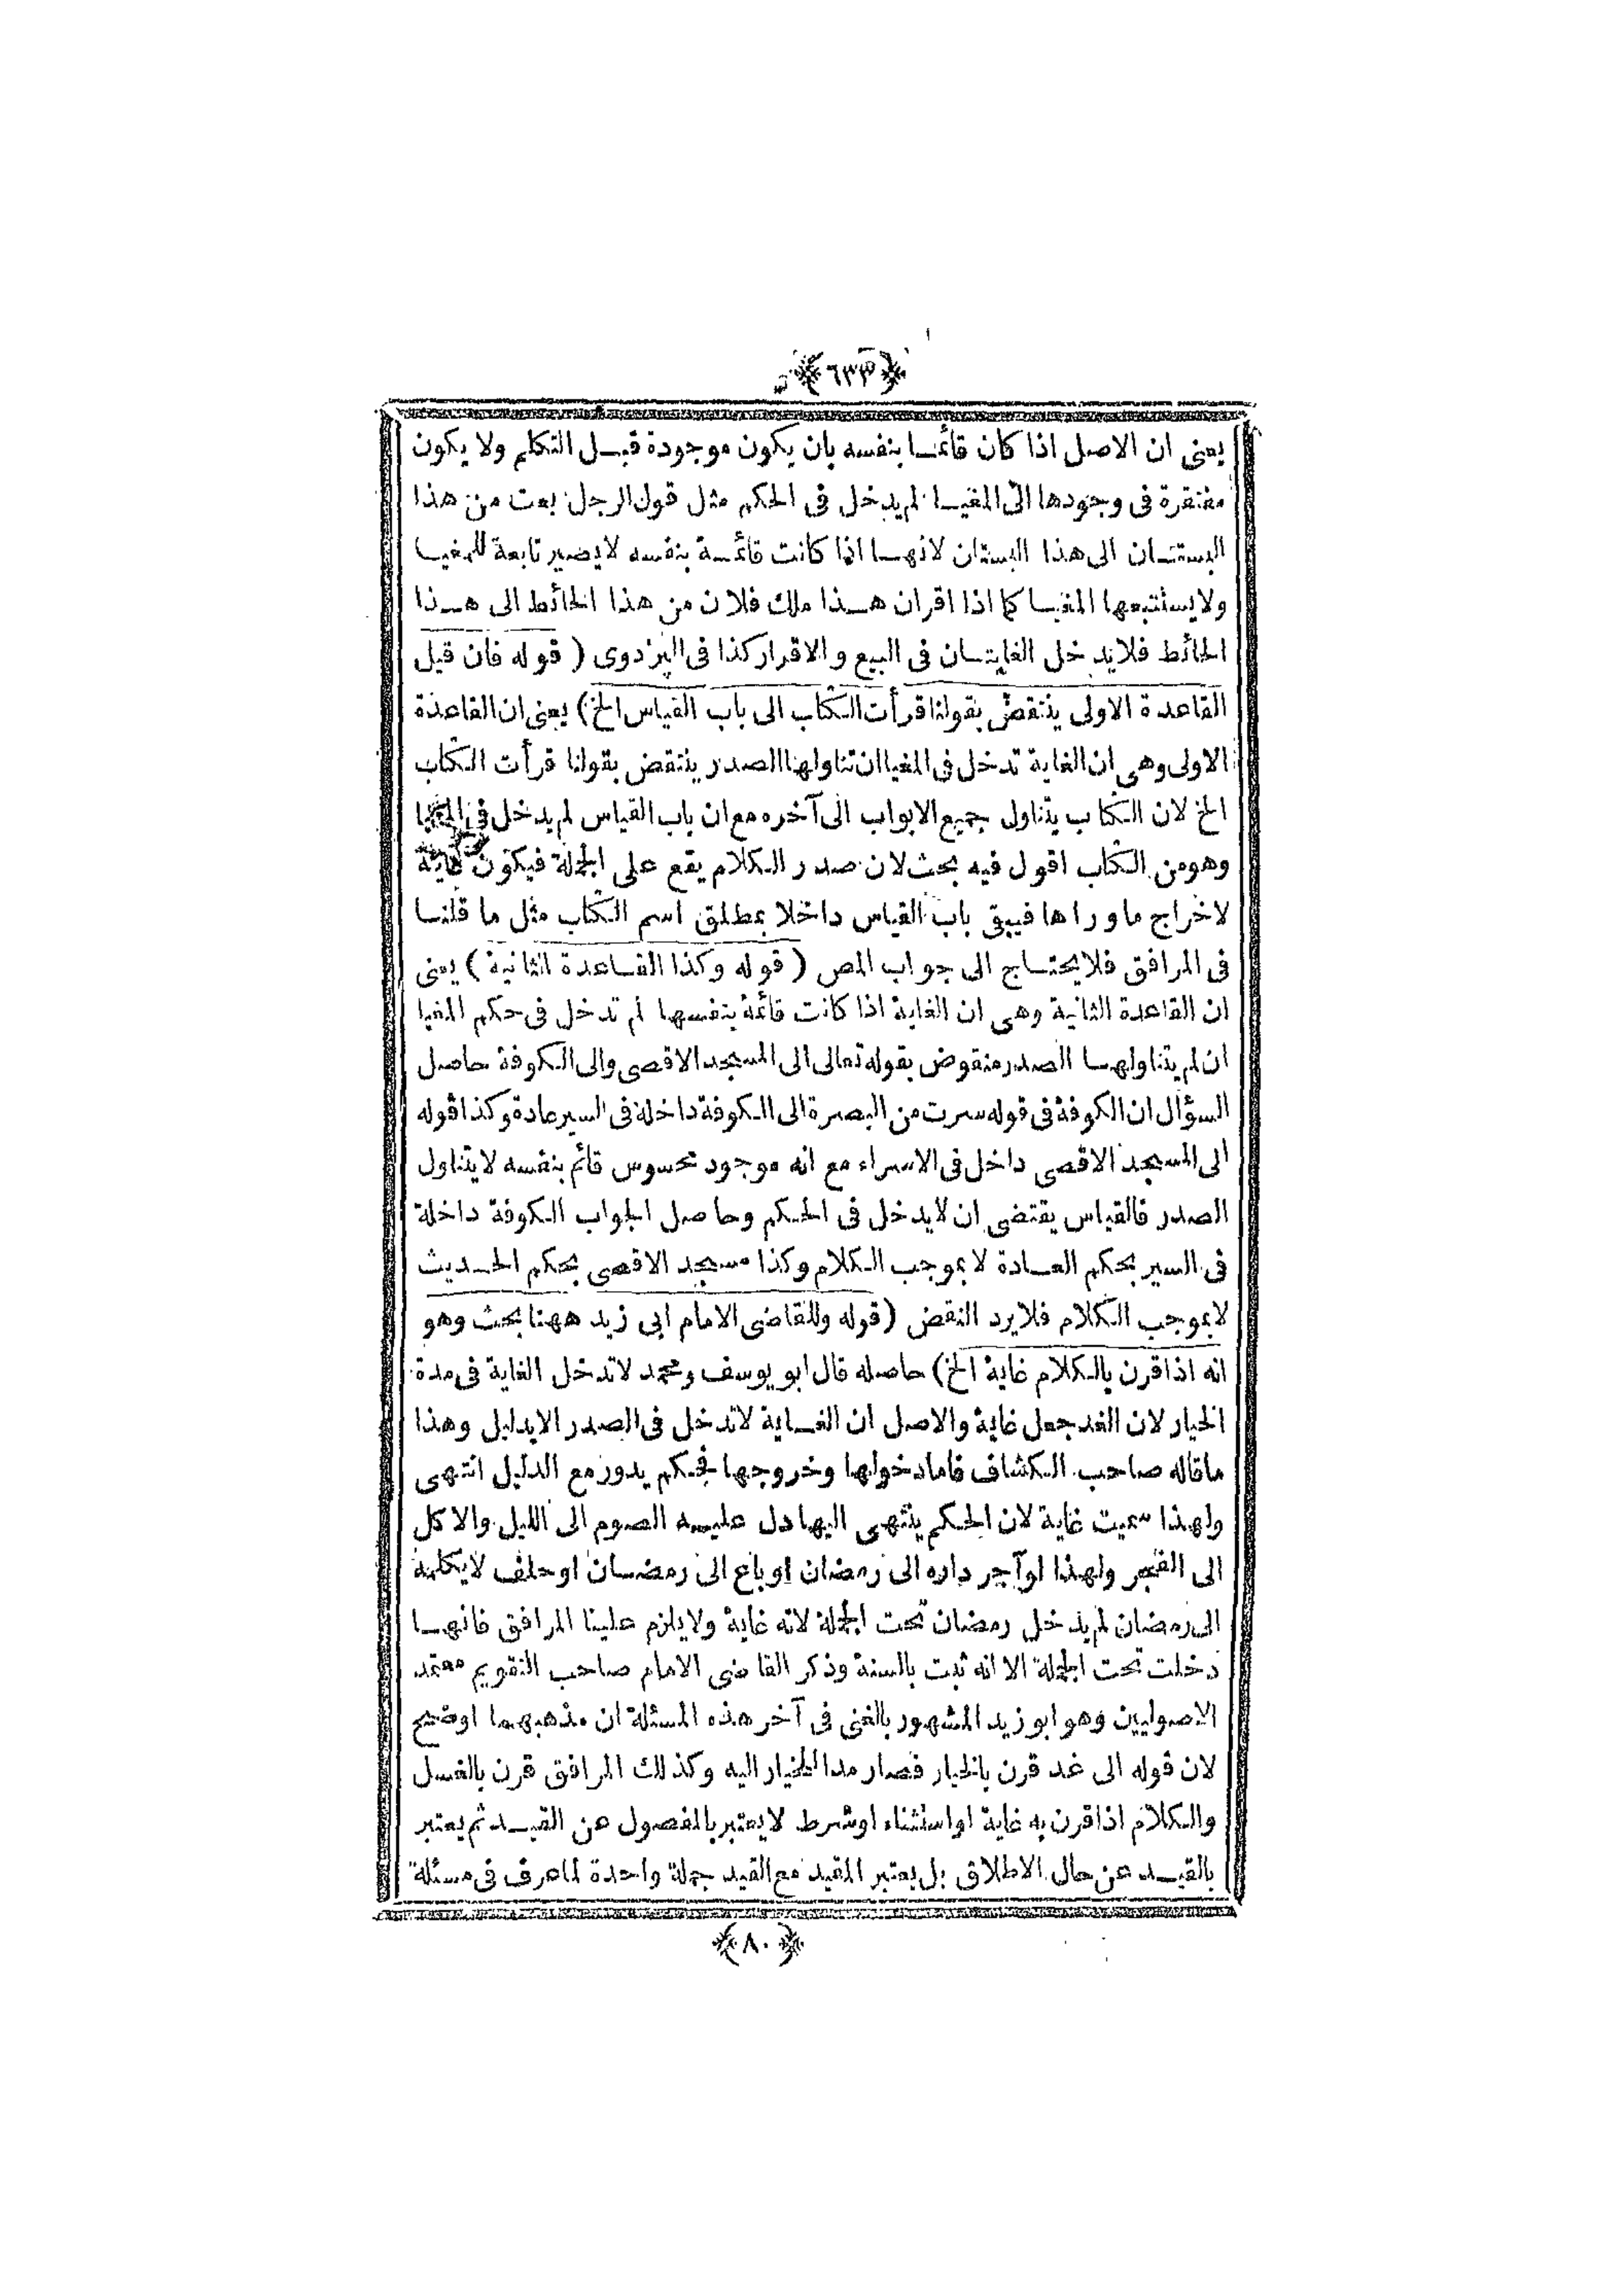 ﴿ ٦٣٣ ﴾
يعنى ان الاصل اذا كان قائما بنفسه بان يكون موجودة قبل التكلم ولا يكون
مفتقرة فى وجودها الى المغيا لم يدخل فى الحكم مثل قول الرجل بعت من هذا
البستان الى هذا البستان لانها اذا كانت قائمة بنفسه لا يصير تابعة للمغيا
ولا يستتبعها المغيا كما اذا اقر ان هذا ملك فلان من هذا الحائط الى هذا
الحائط فلا يدخل الغايتان فى البيع والاقرار كذا فى البزدوى ( قوله فان قيل
القاعدة الاولى ينتقض بقولنا قرأت الكتاب الى باب القياس الخ) يعنى ان القاعدة
الاولى وهى ان الغاية تدخل فى المغيا ان تناولها الصدر ينتقض بقولنا قرأت الكتاب
الخ لان الكتاب يتناول جميع الابواب الى آخره مع ان باب القياس لم يدخل فى المغيا
وهو من الكتاب اقول فيه بحث لان صدر الكلام يقع على الجملة فيكون غاية
لاخراج ماوراها فيبقى باب القياس داخلا بمطلق اسم الكتاب مثل ما قلنا
فى المرافق فلا يحتاج الى جواب المص ( قوله وكذا القاعدة الثانية ) يعنى
ان القاعدة الثانية وهى ان الغاية اذا كانت قائمة بنفسها لم تدخل فى حكم المغيا
ان لم يتناولها الصدر منقوض بقوله تعالى الى المسجد الاقصى والى الكوفة حاصل
السؤال ان الكوفة فى قوله سرت من البصرة الى الكوفة داخلة فى السير عادة وكذا قوله
الى المسجد الاقصى داخل فى الاسراء مع انه موجود محسوس قائم بنفسه لا يتناول
الصدر فالقياس يقتضى ان لايدخل فى الحكم وحاصل الجواب الكوفة داخلة
فى السير بحكم العادة لا بموجب الكلام وكذا مسجد الاقصى بحكم الحديث
لا بموجب الكلام فلا يرد النقض (قوله وللقاضى الامام ابى زيد ههنا بحث وهو
انه اذا قرن بالكلام غاية الخ) حاصله قال ابو يوسف ومحمد لا تدخل الغاية فى مدة
الخيار لان الغد جعل غاية والاصل ان الغاية لا تدخل فى الصدر الا بدليل وهذا
ماقاله صاحب الكشاف فاما دخولها وخروجها فحكم يدور مع الدليل انتهى
ولهذا سميت غاية لان الحكم ينتهى اليها دل عليه الصوم الى الليل والاكل
الى الفجر ولهذا لو آجر داره الى رمضان او باع الى رمضان او حلف لا يكلمه
الى رمضان لم يدخل رمضان تحت الجملة لانه غاية ولا يلزم علينا المرافق فانها
دخلت تحت الجملة الا انه ثبت بالسنة وذكر القاضى الامام صاحب التقويم معتمد
الاصوليين وهو ابو زيد المشهور بالغنى فى آخر هذه المسئلة ان مذهبهما اوضح
لان قوله الى غد قرن بالخيار فصار مدا للخيار اليه وكذلك المرافق قرن بالغسل
والكلام اذا قرن به غاية او استثناء او شرط لا يعتبر بالمفصول عن القيد ثم يعتبر
بالقيد عن حال الاطلاق بل يعتبر المقيد مع القيد جملة واحدة لما عرف فى مسئلة
﴿ ٨٠ ﴾